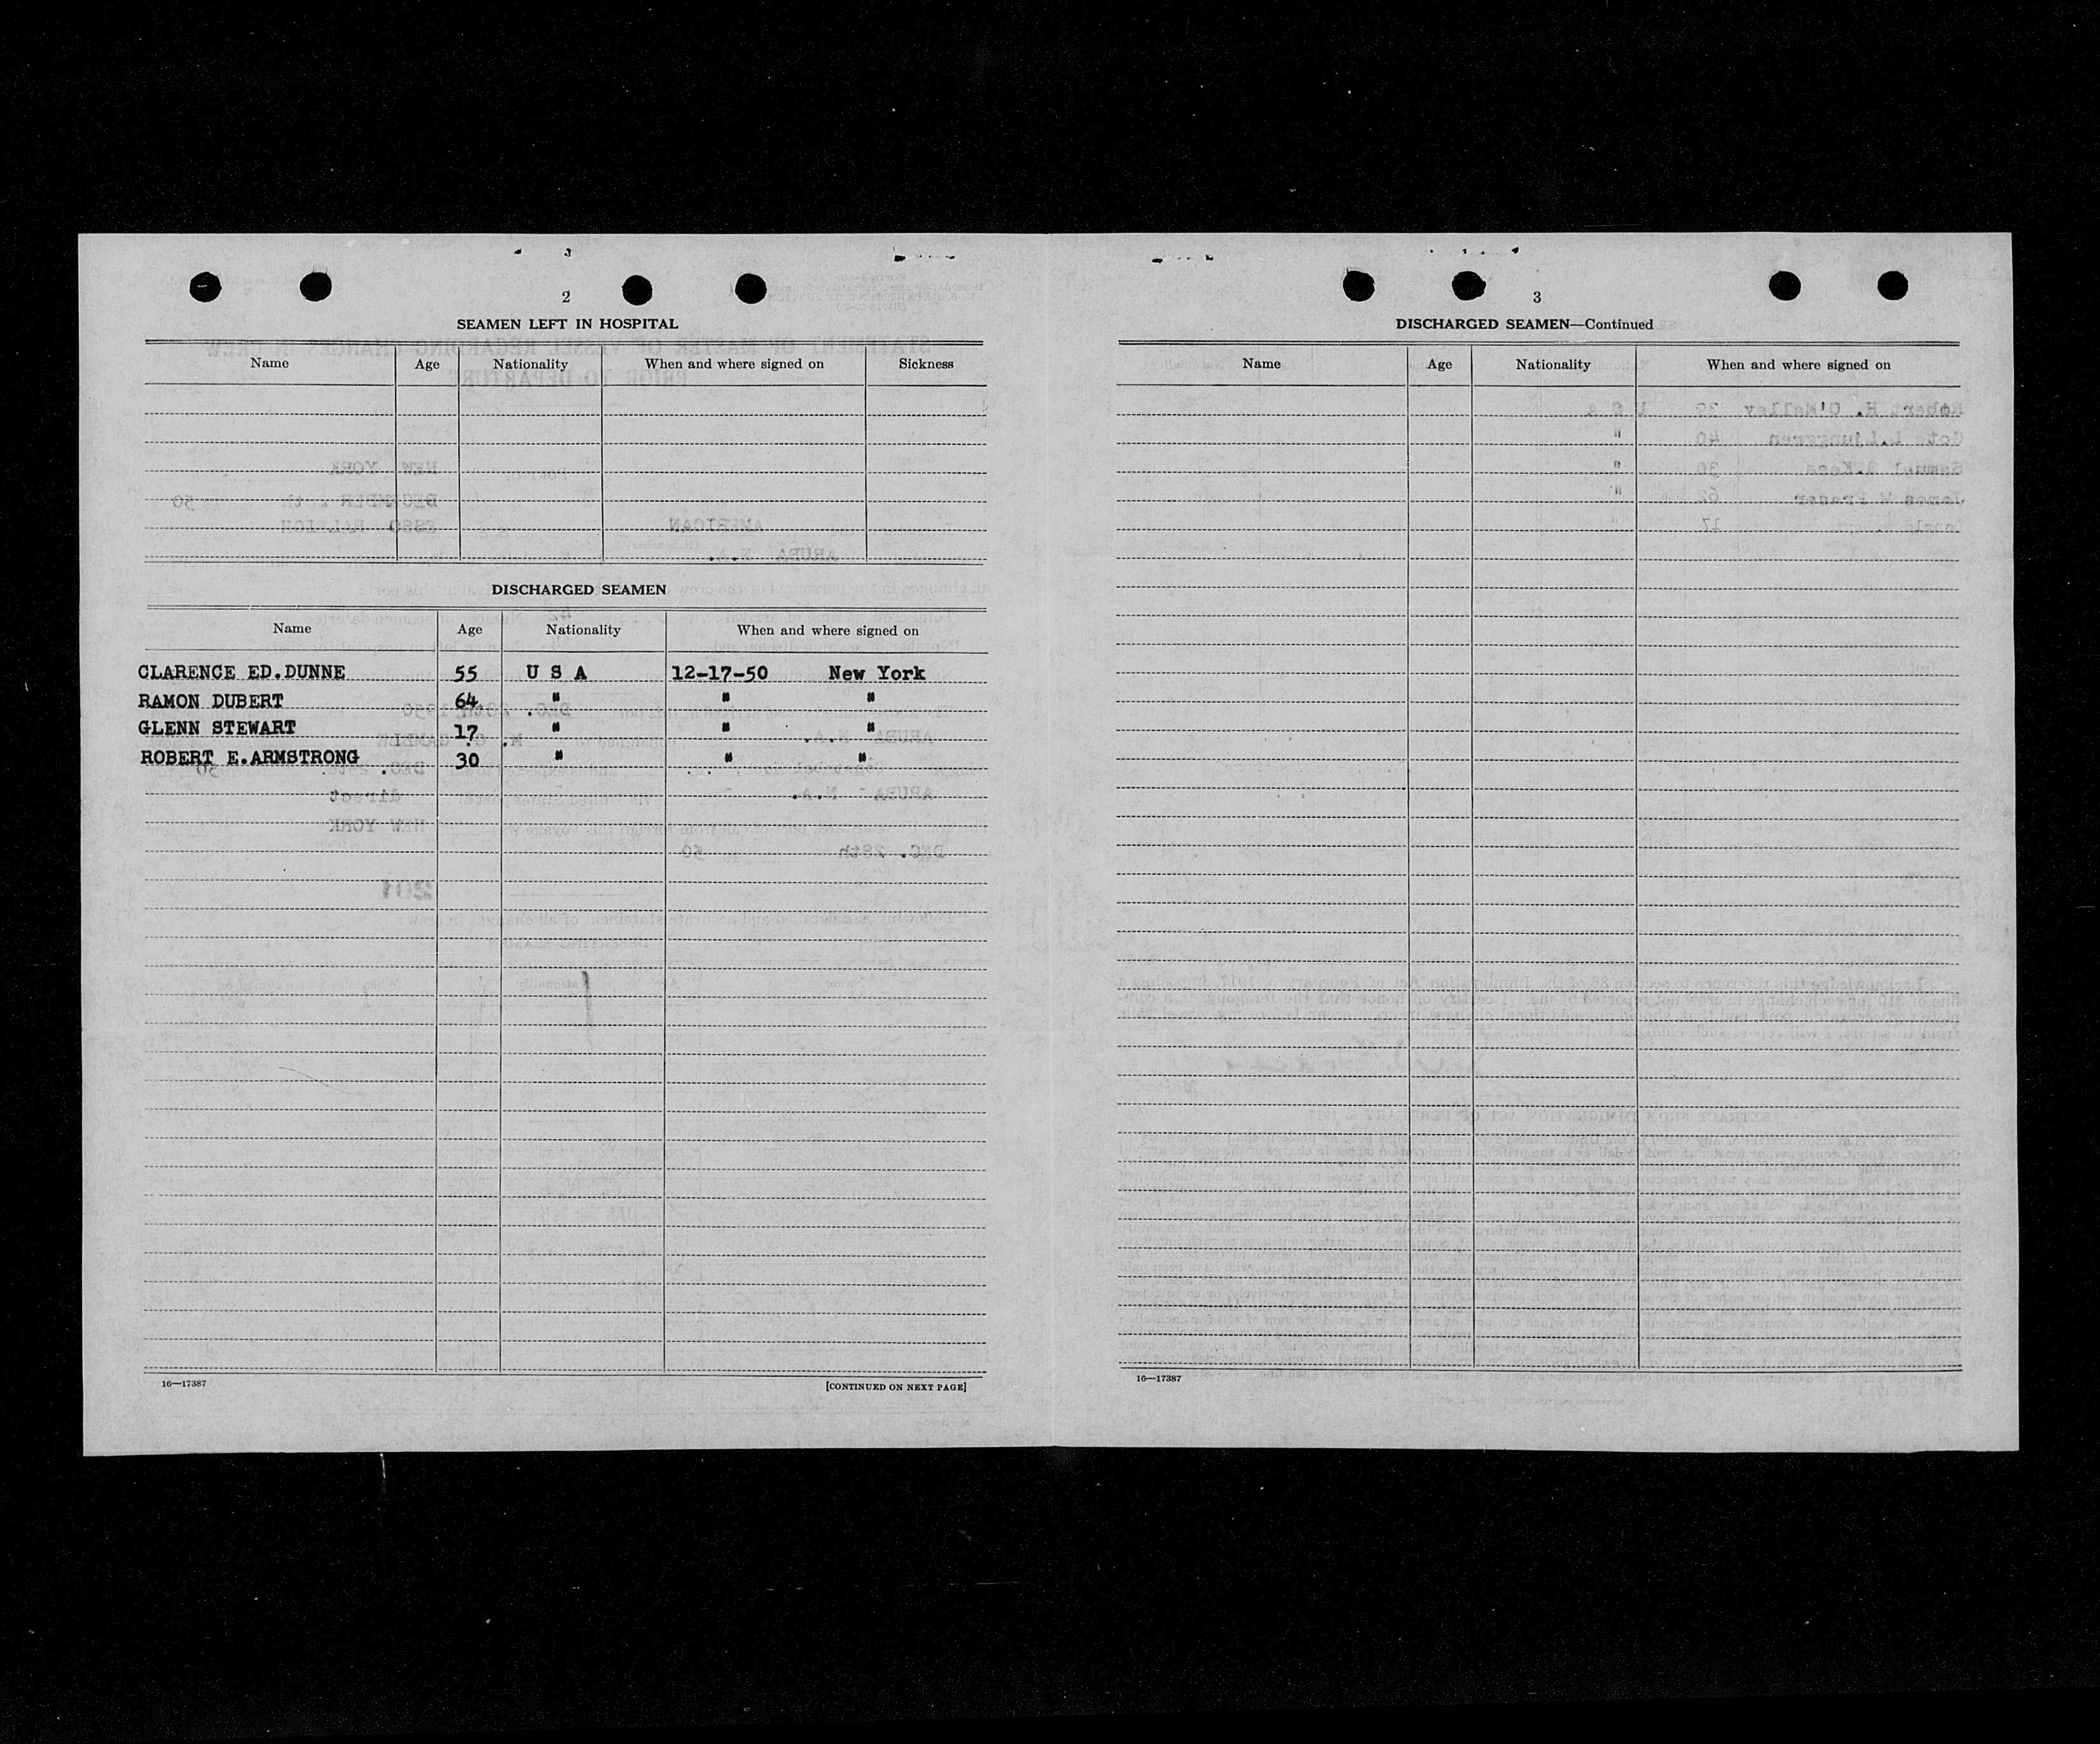 2
SEAMEN LEFT IN HOSPITAL
Name Age Nationality When and where signed on Sickness
DISCHARGED SEAMEN
Name Age Nationality When and where signed on
CLARENCE ED.DUNNE 55 U S A 12-17-50 New York
RAMON DUBERT 64 " " "
GLENN STEWART 17 " " "
ROBERT E.ARMSTRONG 30 " " "
16—17387 [CONTINUED ON NEXT PAGE]
3
DISCHARGED SEAMEN—Continued
Name Age Nationality When and where signed on
16—17387